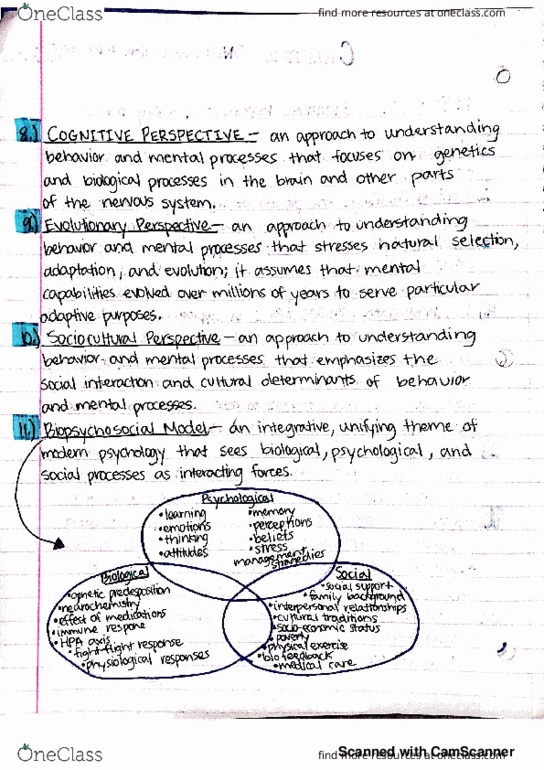 OneClass
find more resources at oneclass.com
8.) COGNITIVE PERSPECTIVE - an approach to understanding
behavior and mental processes that focuses on genetics
and biological processes in the brain and other parts
of the nervous system.
9.) Evolutionary Perspective - an approach to understanding
behavior and mental processes that stresses natural selection,
adaptation, and evolution; it assumes that mental
capabilities evolved over millions of years to serve particular
adaptive purposes.
10.) Sociocultural Perspective - an approach to understanding
behavior and mental processes that emphasizes the
social interaction and cultural determinants of behavior
and mental processes.
11.) Biopsychosocial Model - an integrative, unifying theme of
modern psychology that sees biological, psychological, and
social processes as interacting forces.
Psychological
•learning
•emotions
•thinking
•attitudes
•memory
•perceptions
•beliefs
•stress
management
strategies
Biological
•genetic predeposition
•neurochemistry
•effect of medications
•immune respone
•HPA axis
•fight-flight response
•physiological responses
Social
•social support
•family background
•interpersonal relationships
•cultural traditions
•socio-economic status
•poverty
•physical exercise
•bio feedback
•medical care
OneClass
find more resources at oneclass.com
Scanned with CamScanner